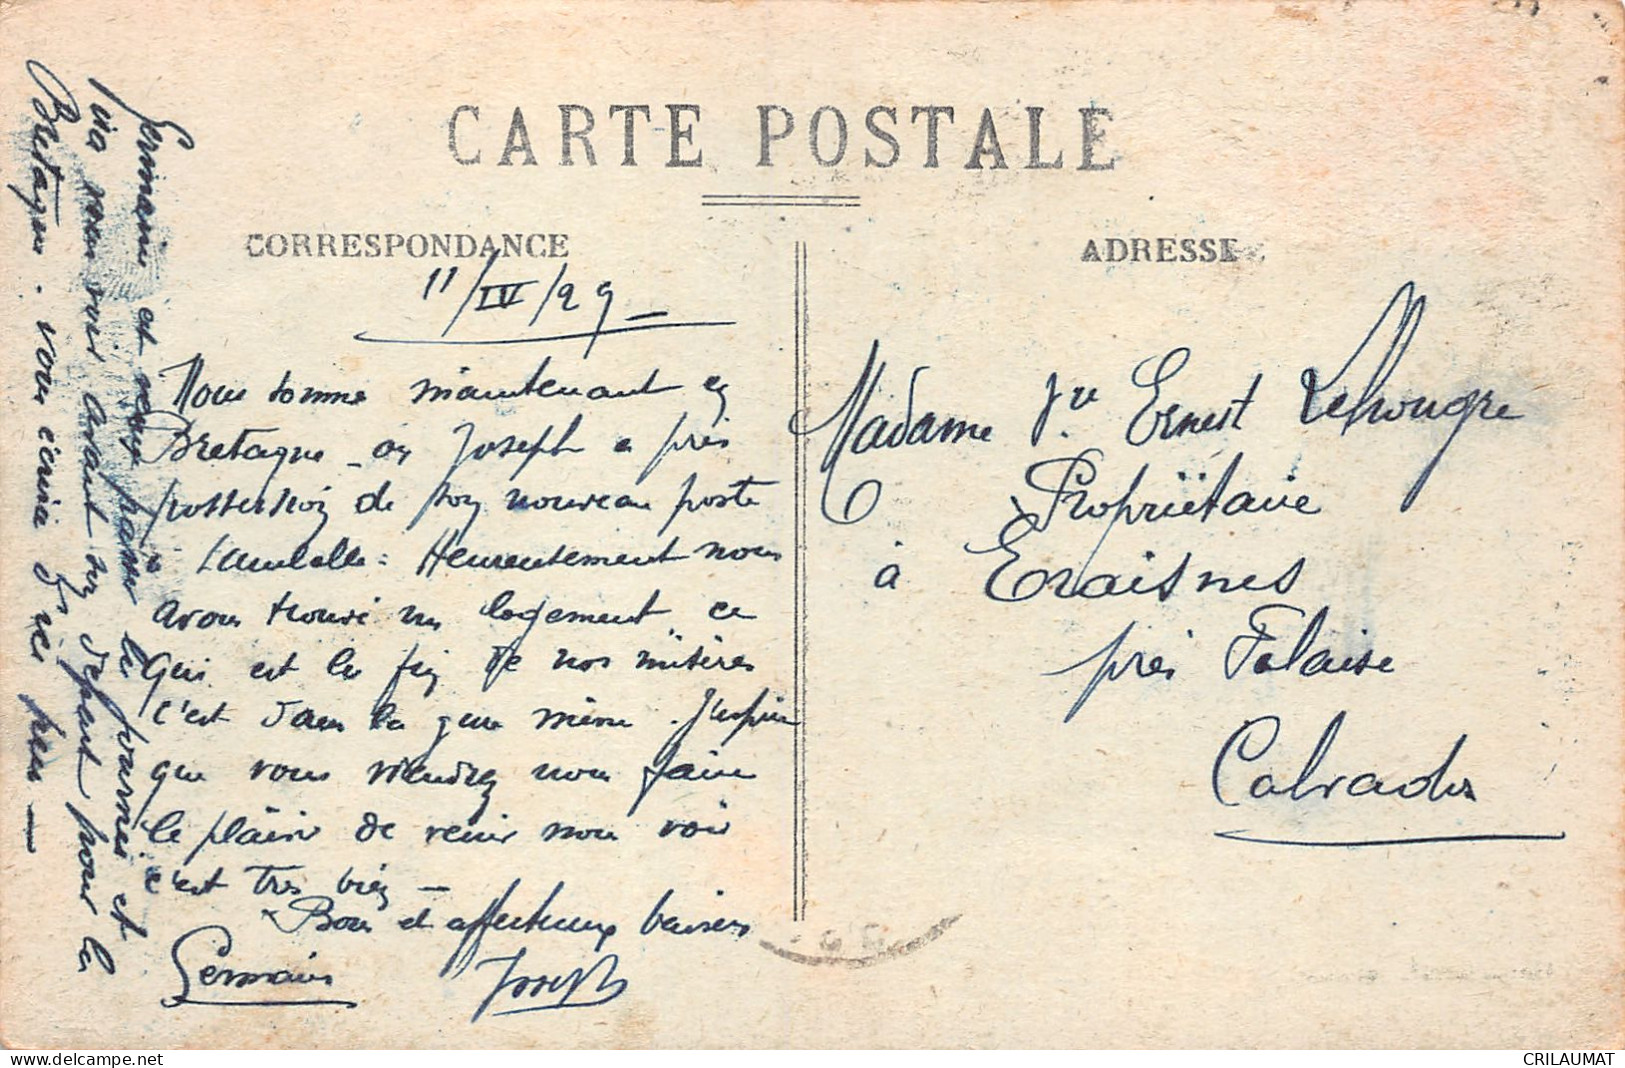 CARTE POSTALE
CORRESPONDANCE
ADRESSE
11/IV/29
Nous somme maintenant en
Bretagne - où Joseph a pris
possession de son nouveau poste
à Lamballe = Heureusement nous
avons trouvé un logement ce
qui est la fin de nos misères
c'est dans la gare même. J'espère
que vous viendrez nous faire
le plaisir de venir nous voir
c'est très bien —
Bons et affectueux baisers
Germaine Joseph
Germaine et venez passer la journée et
ira vous voir avant son départ pour la
Bretagne. vous écrira d'ici peu —
Madame Vve Ernest Lehougre
Propriëtaire
à Eraisnes
près Falaise
Calvados
CRILAUMAT
delcampe.net